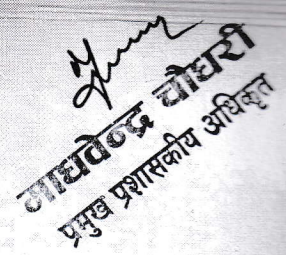 माधवेन्द्र चौधरी
प्रमुख प्रशासकीय अधिकृत